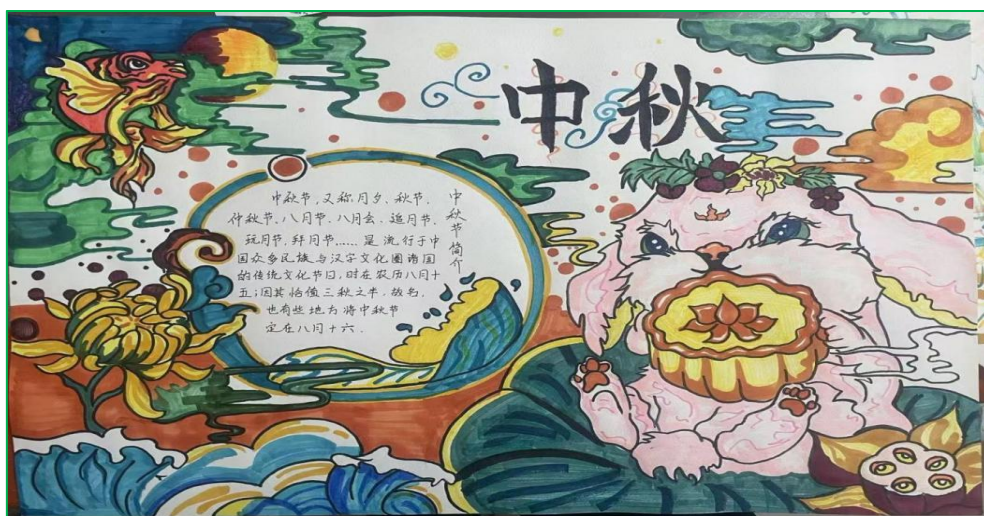 中秋
中秋节简介
中秋节，又称月夕、秋节、
仲秋节、八月节、八月会、追月节、
玩月节、拜月节……是流行于中
国众多民族与汉字文化圈诸国
的传统文化节日，时在农历八月十
五；因其恰值三秋之半，故名，
也有些地方将中秋节
定在八月十六．